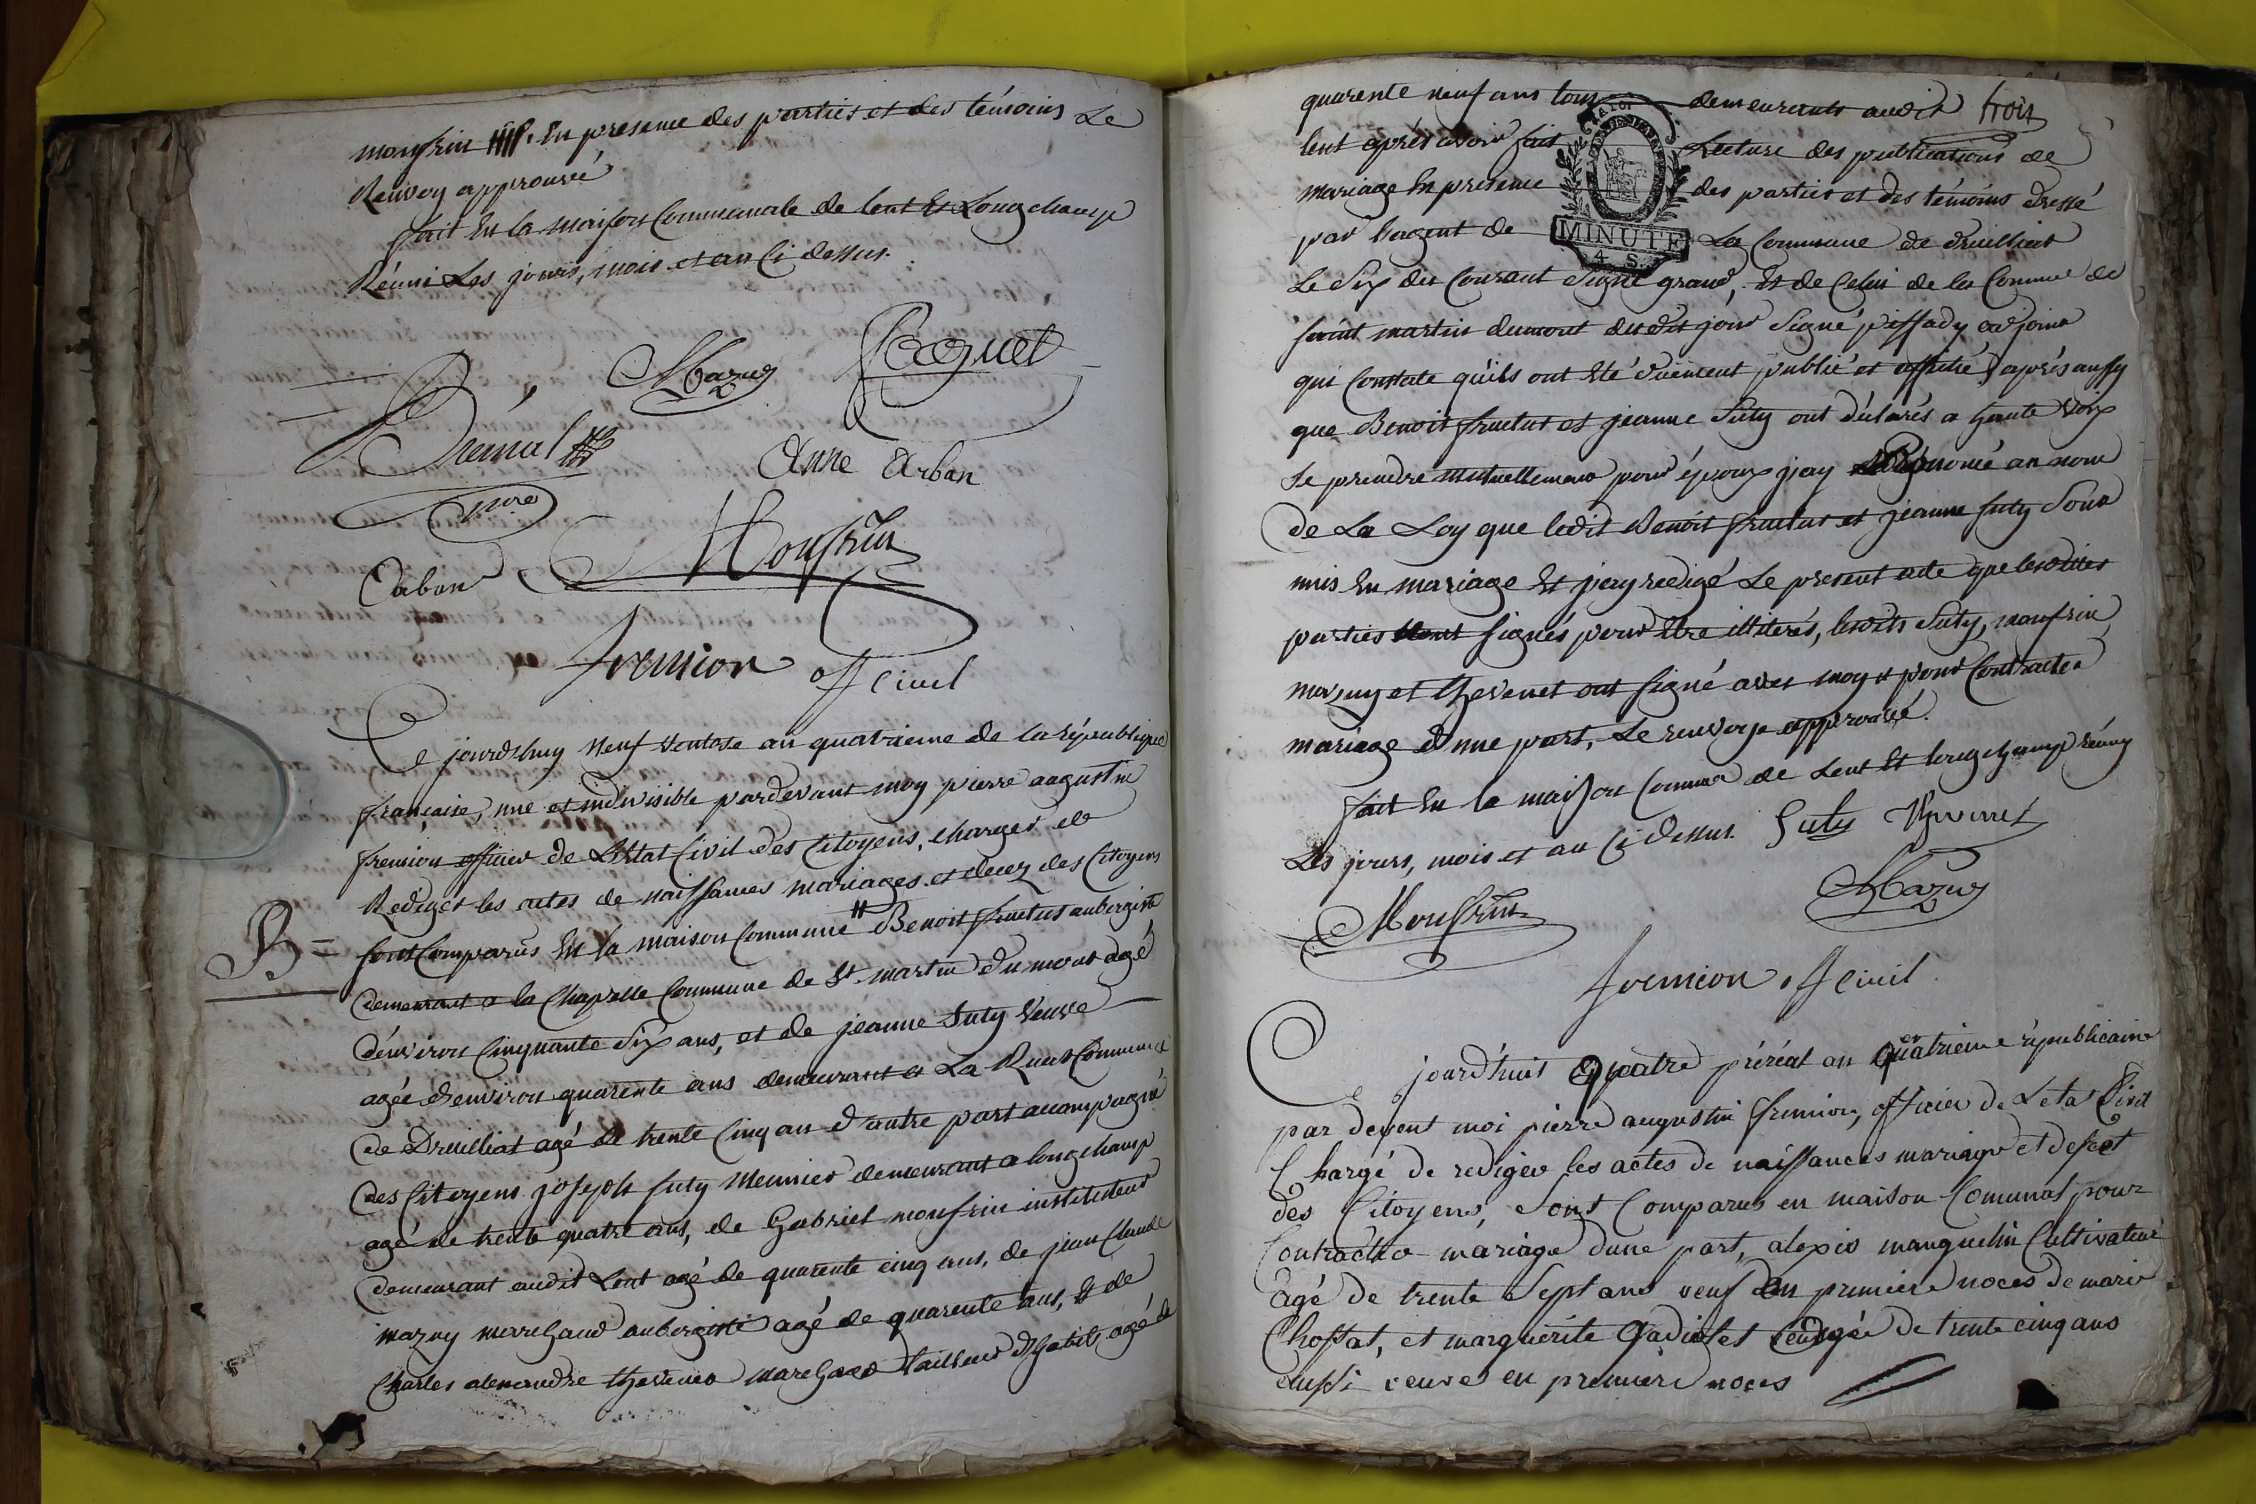 monfrin #. En presence des parties et des témoins Le
Renvoy approuvé
fait En la maison Communale de lent Et Longchamp
Réuni Les jours, mois et an Ci dessus.
Mazuy
Paquet
Anne Arban
nre
Caban
Monfrin
fremion off civil
Ce jourdhuy Neuf Ventose an quatrieme de la république
française, une et indivisible pardevant moy pierre augustin
fremion officier de L'Etat Civil des Citoyens, Charger de
Rediger les actes de naissances mariages et decez des Citoyens
sont Comparus En la maison Commune # Benoit fruetus aubergiste
demeurant a la Chapelle Commune de St martin du mont agé
d'environ Cinquante Six ans, et de jeanne Suty Veuve
agée d'environ quarente ans demeurant a La Ruat Commune
de Druilliat agé de trente Cinq an d'autre part accompagné
des Citoyens joseph Suty Meunier demeurant a longchamp
agé de trente quatre ans, de Gabriel monfrin instituteur
demeurant audit Lent agé de quarente cinq ans, de jean Claude
mazuy marchand aubergiste agé de quarente ans, Et de
Charles alexandre thevenet marchand tailleur d'habits agé de
B =
quarente neuf ans tous demeurants audit trois
lent après avoir fait Lecture des publications de
mariage En presence des parties et des témoins dressé
par l'agent de La Commune de druilliat
MINUTE
4. S.
Le Six du Courant Signé grand, Et de Celui de la Comune de
saint martin dumont dudit jour Signé pissady adjoint
qui Constate qu'ils ont Eté duement publié et affiché) après aussy
que Benoit fruetus et jeanne Suty ont déclarés a haute Voix
Se prendre mutuellement pour époux j'ay prononcé au nom
de La Loy que ledit Benoit fruetus et jeanne Suty Sont
unis En mariage Et j'ay redigé Le present acte que lesdites
parties n'ont signés pour Etre illiterés, lesdits Suty, monfrin
mazuy et thevenet ont signé avec moy # pour Contracter
mariage d'une part, Le renvoye approuvé.
fait En la maison Commune de Lent Et longchamp réuny
Les jours, mois et an Ci dessus. Suty Thevenet
Monfrin
Mazuy
fremion off civil
Ce jourd'huit Quatre préréal an quatrieme républicaine
par devent moi pierre augustin fremion, officier de Leta Civil
Chargé de redigér les actes de naissances mariage et desect
des Citoyens, sont Comparus en maison Comunal pour
Contracter mariage dune part, alexis manguelin Cultivateur
agé de trente Sept ans veuf en premiere noces de marie
Chossat, et marguerite Gadiolet agée de trente cinq ans
aussi veuve en premiere noces